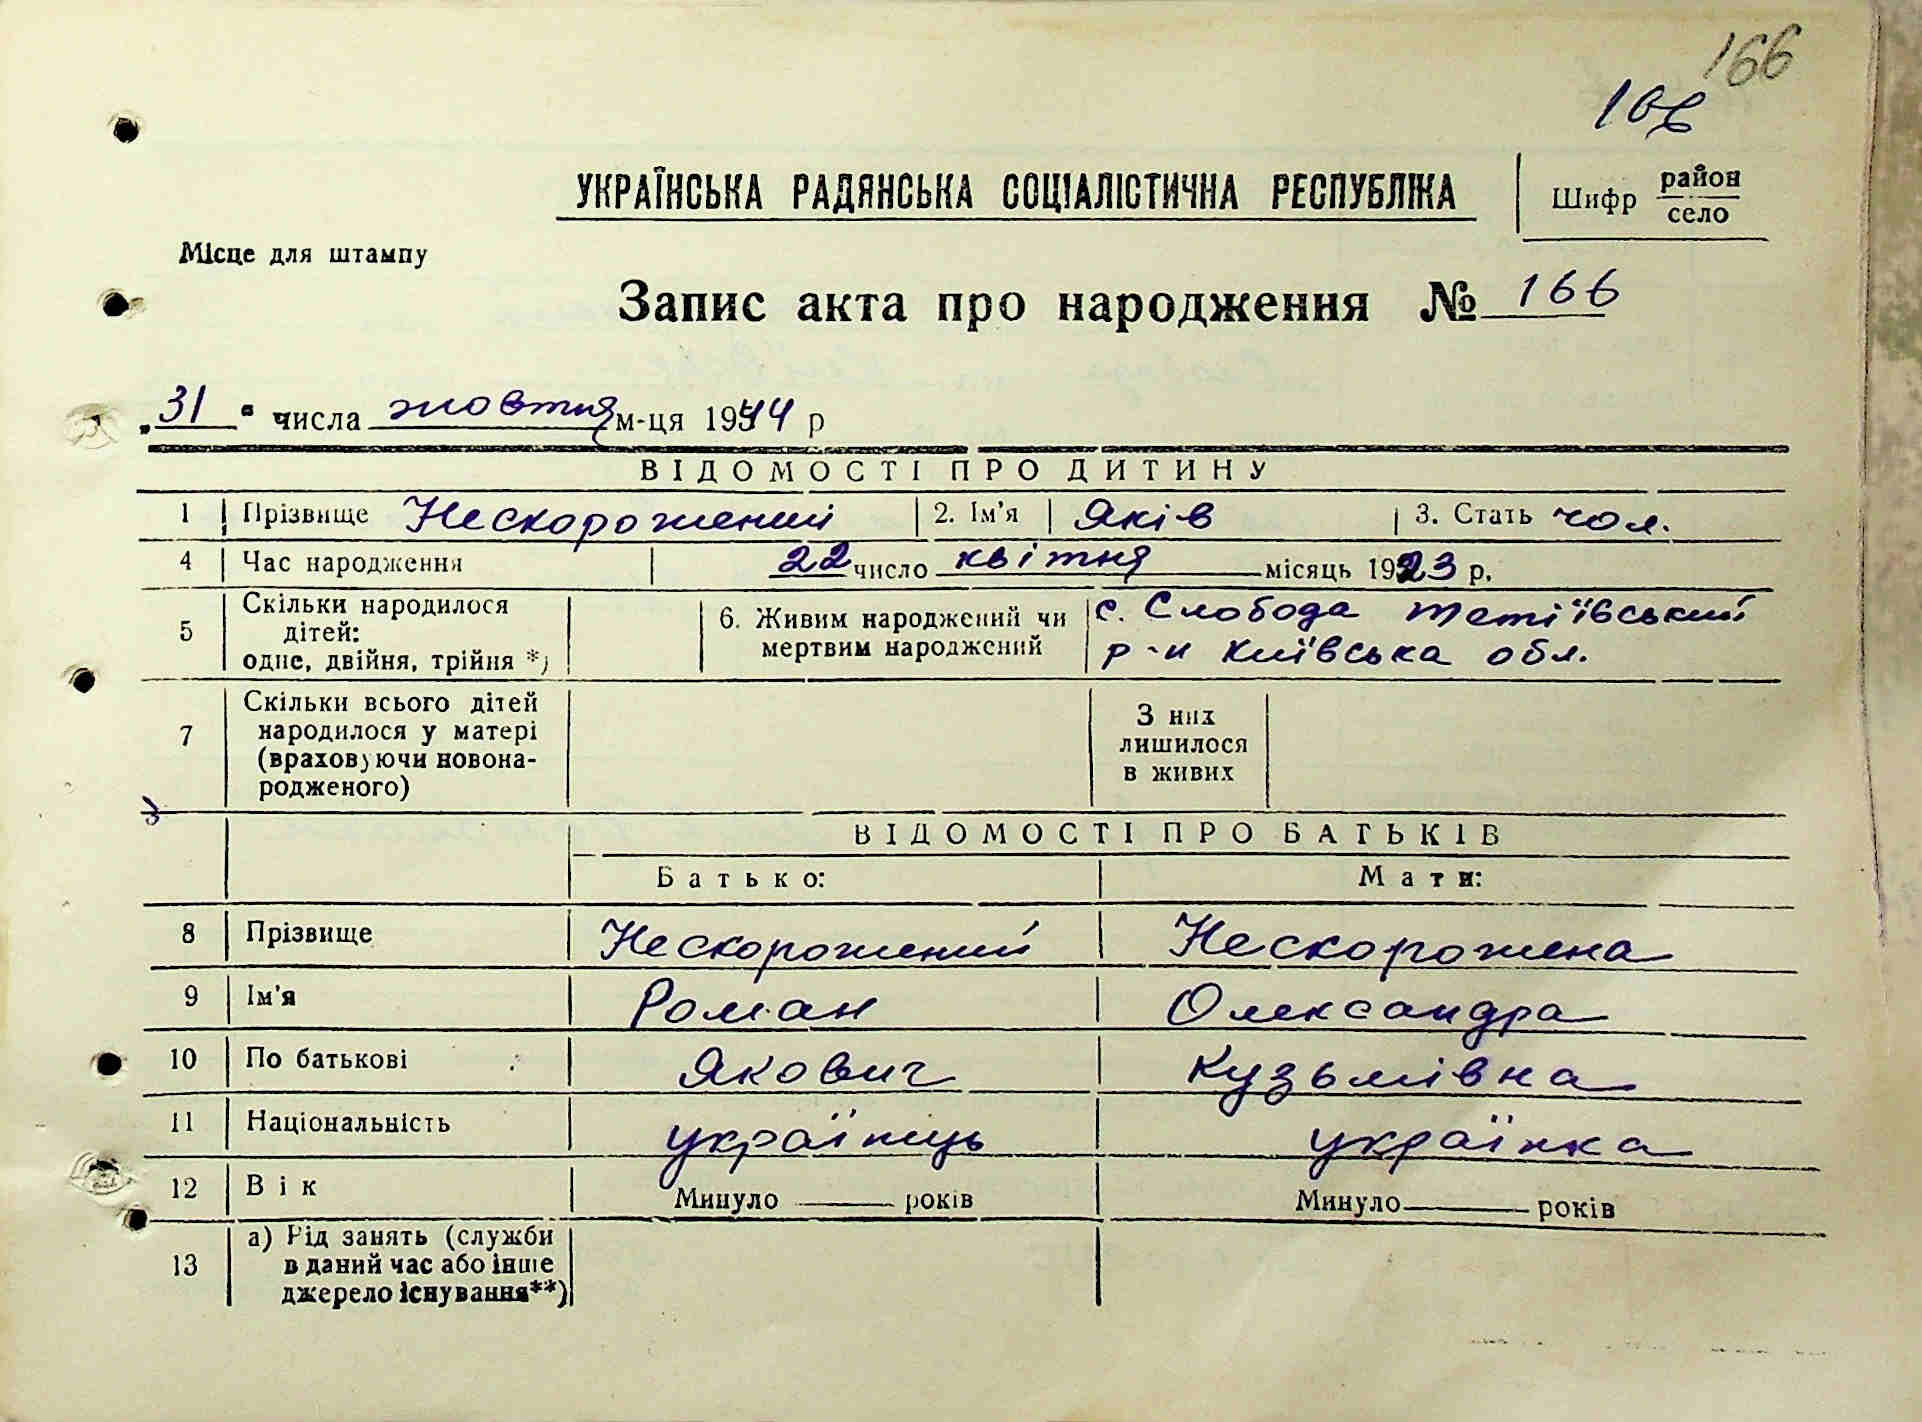 166
166
УКРАЇНСЬКА РАДЯНСЬКА СОЦІАЛІСТИЧНА РЕСПУБЛІКА
Шифр район
село
Місце для штампу
Запис акта про народження № 166
„31“ числа жовтня м-ця 1944 р
ВІДОМОСТІ ПРО ДИТИНУ
1 Прізвище Нескорожений 2. Ім'я Яків 3. Стать чол.
4 Час народження 22 число квітня місяць 1923 р.
5 Скільки народилося дітей: одне, двійня, трійня *)
6. Живим народжений чи мертвим народжений
с. Слобода Тетіївський
р-н Київська обл.
7 Скільки всього дітей народилося у матері (враховуючи новонародженого)
З них лишилося в живих
ВІДОМОСТІ ПРО БАТЬКІВ
Батько: Мати:
8 Прізвище Нескорожений Нескорожена
9 Ім'я Роман Олександра
10 По батькові Якович Кузьмівна
11 Національність українць українка
12 Вік Минуло років Минуло років
13 а) Рід занять (служби
в даний час або інше
джерело існування**)